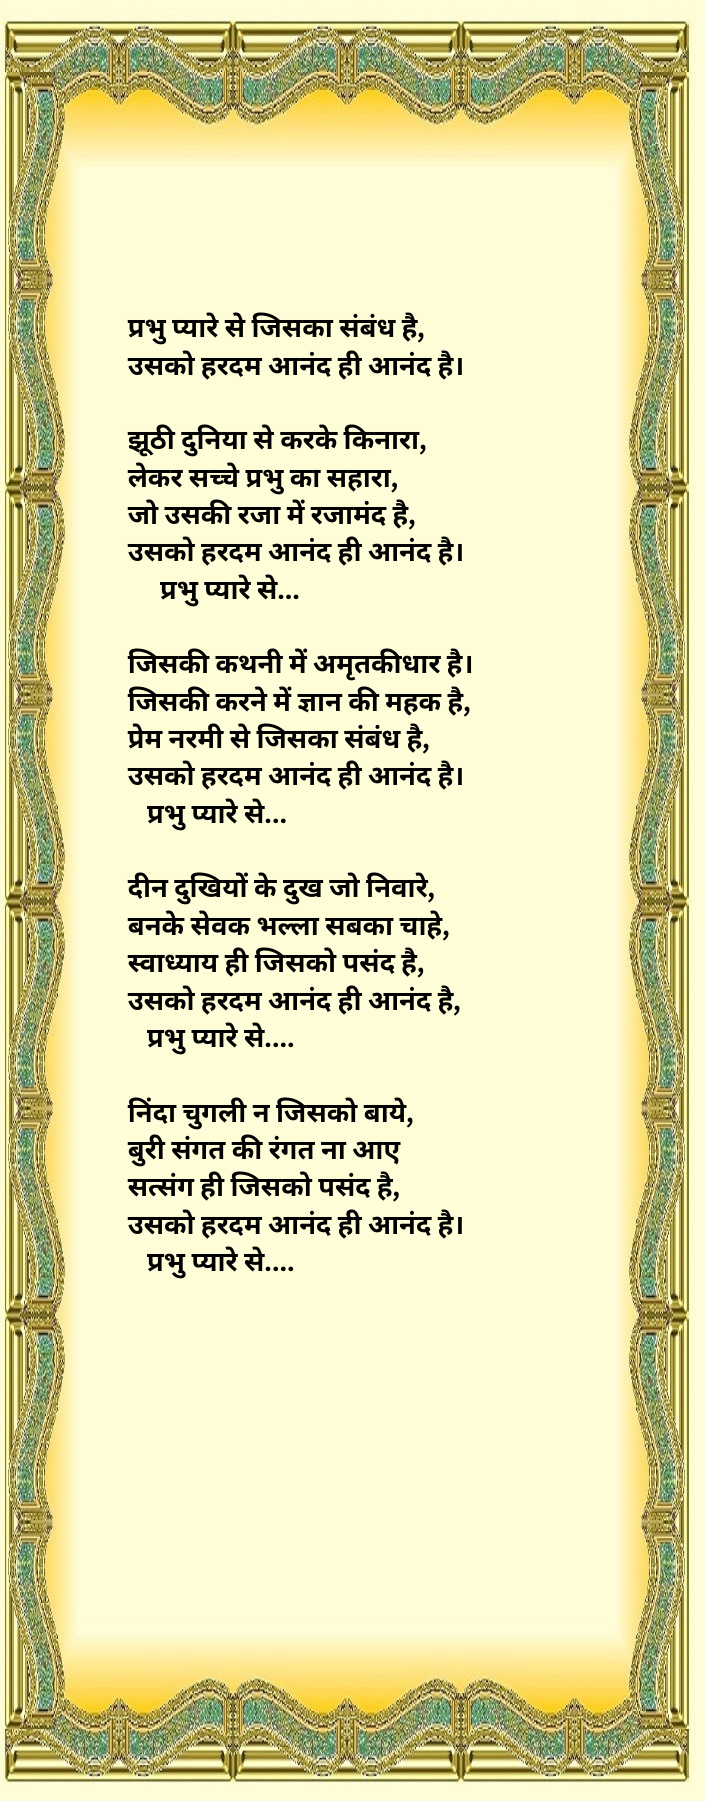 प्रभु प्यारे से जिसका संबंध है,
उसको हरदम आनंद ही आनंद है।
झूठी दुनिया से करके किनारा,
लेकर सच्चे प्रभु का सहारा,
जो उसकी रजा में रजामंद है,
उसको हरदम आनंद ही आनंद है।
प्रभु प्यारे से...
जिसकी कथनी में अमृतकीधार है।
जिसकी करने में ज्ञान की महक है,
प्रेम नरमी से जिसका संबंध है,
उसको हरदम आनंद ही आनंद है।
प्रभु प्यारे से...
दीन दुखियों के दुख जो निवारे,
बनके सेवक भल्ला सबका चाहे,
स्वाध्याय ही जिसको पसंद है,
उसको हरदम आनंद ही आनंद है,
प्रभु प्यारे से....
निंदा चुगली न जिसको बाये,
बुरी संगत की रंगत ना आए
सत्संग ही जिसको पसंद है,
उसको हरदम आनंद ही आनंद है।
प्रभु प्यारे से....